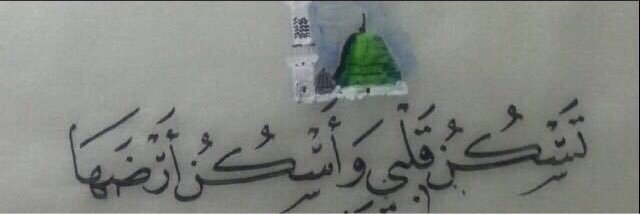 تَسْكُنُ قَلْبِي وَأَسْكُنُ أَرْضَهَا